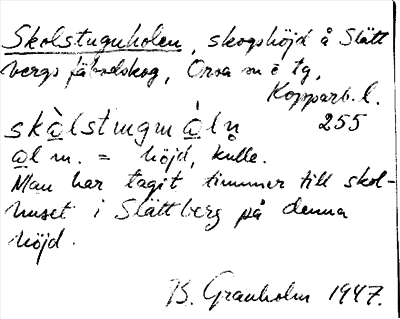 Skolstuguholen, skogshöjd å Slätt
bergs fäbodskog, Orsa sn o tg,
Kopparb. l.
skòlstuguàln 255
al m. = höjd, kulle.
Man har tagit timmer till skol-
huset i Slättberg på denna
höjd.
B. Granholm 1947.